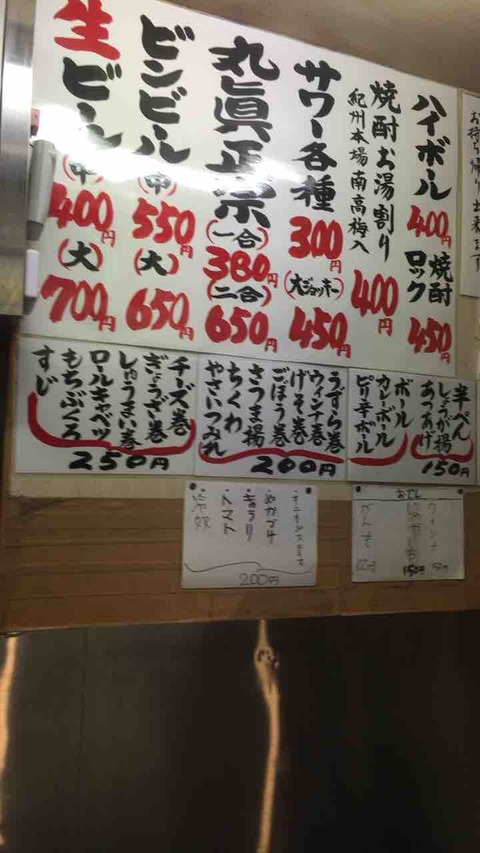 お持ち帰り出来ます
ハイボール
400円
焼酎
ロック
450円
焼酎お湯割り
紀州本場南高梅入
400円
サワー各種
300円
(大ジョッキー)
450円
丸眞正宗
(一合)
380円
(二合)
650円
ビンビール
(中)
550円
(大)
650円
生ビール
(中)
400円
(大)
700円
半ぺん
しょうが揚
あつあげ
150円
ボール
カレーボール
ピリ辛ボール
うずら巻
ウィンナ巻
げそ巻
ごぼう巻
さつま揚
ちくわ
やさいつみれ
200円
チーズ巻
ぎょうざ巻
しゅうまい巻
ロールキャベツ
もちぶくろ
すじ
250円
おでん
ウィンナ
150円
じゃがいも
150円
がんも
・オニオンスライス
・ぬかづけ
・きゅうり
・トマト
・冷奴
200円